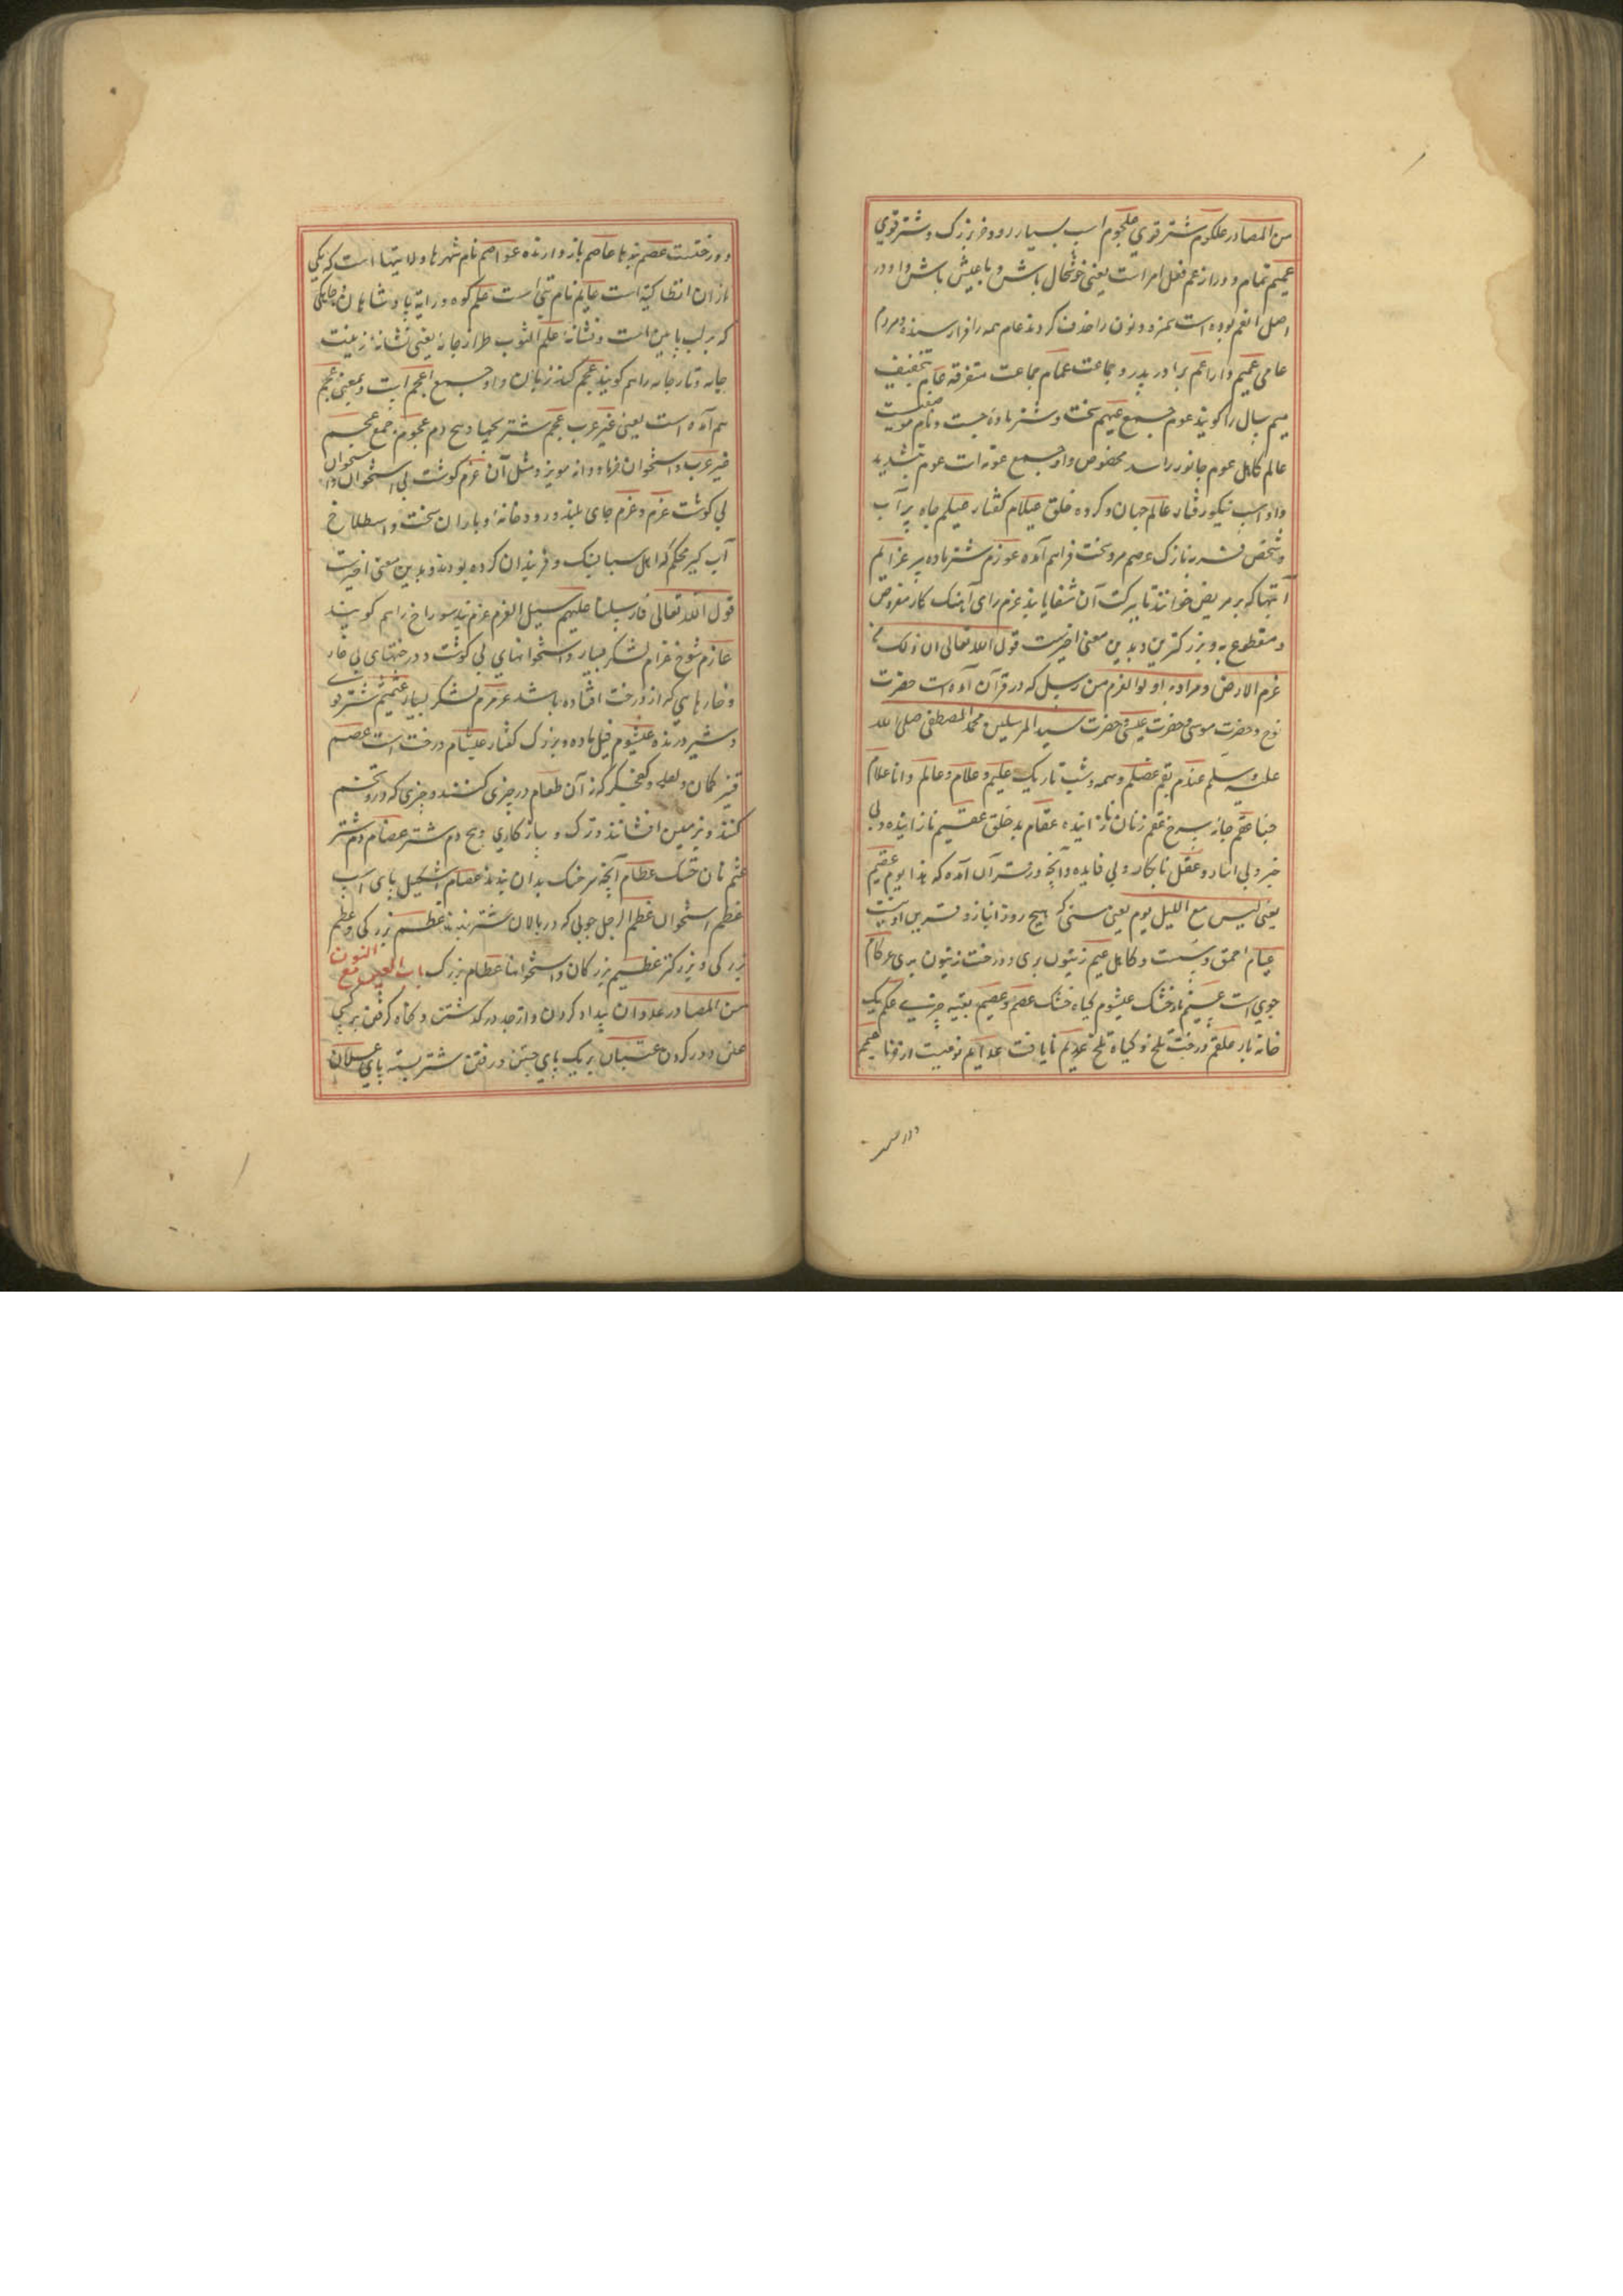 من المصادر علکوم شتر قوی علجوم اسب بسیار رو و خر بزرک و شتر قوی
عمیم تمام و دراز عم فعل امر است یعنی خوشحال باش و با عیش باش و او در
اصل انعم بوده است همزه و نون را حذف کردند عام همه را فرا رسنده و مردم
عامی عمیم و ارا عم برادر پدر و جماعت عمام جماعت متفرقه عام بتخفیف
میم سال را کویند عوم جمع عیهم سخت و شتر ماده جست و نام موضعیست
عالم کامل عوم جانور راسد مخصوص واو جمع عومه است عوم بتشدید
واو اسب نیکو رفتار عالم جهان و کروه خلق عیلام کفتار عیلم چاه پر آب
و شخص نازک عصم مرد سخت فراهم آمده عوزم شتر ماده پیر عزایم
آیتها که بر مریض خوانند تا ببرکت آن شفا یابد عزم رای آهنک کار مفروض
و مقطوع به و بزرکترین و بدین معنی اخیرست قول الله تعالی ان ذلک من
عزم الارض و مراد به اولوا العزم من رسل که در قرآن آمده است حضرت
نوح و حضرت موسی و حضرت عیسی و حضرت سید المرسلین محمد المصطفی صلی الله
علیه و سلم عندم بقم عضلم وسمه و شب تاریک علیم و علام و عالم دانا علام
حنا عقم جامه سرخ عقم زنان نازاینده عقام بد خلق عقیم نازاینده و بی
خیر و بی و عقل نابکار و بی فایده و آنچه در قرآن آمده که هذا یوم عقیم
یعنی لیس مع اللیل یوم یعنی هیچ روز انباز و قرین او نیست
عیام احمق و کاهل عتم زیتون بری و درخت زیتون بری عرکام
جوبی است عیشم نان خشک عیشوم کیاه خشک عصم و عصیم بقیه چیزی عکم یک
خانه بار علقم درخت تلخ و کیاه تلخ عدیم نایافت عدایم نوعیست از خرما عیثم
درختیست
درختیست عصم بزها عاصم باز دارنده عواصم نام شهرها و ولایتها است که یکی
از آن انطاکیه است عایم نام بتی است علم کوه و رایة پادشاهان و چاکی
که بر لب پایین است و نشانه علم الثوب طراز جامه یعنی نشانه زینت
جامه و تار جامه را هم کویند عجم کند زبان و او جمع اعجم است و بمعنی عجم
هم آمده است یعنی غیر عرب عجم شتر بچها و بیخ دم عجوم جمع عجم
غیر عرب و استخوان خرما و دانه مویز و مثل آن عرم کوشت بی استخوان و استخوان
بی کوشت عرم و عرم جای بلند و رودخانه و باران سخت و اسطلخ
آب کیر محکم که اهل سبا بسنک و قیر بدان کرده بودند و بدین معنی اخیرست
قول الله تعالی فارسلنا علیهم سیل العرم عرم بند سوراخ را هم کویند
عارم شوخ عرام لشکر بسیار و استخوانهای بی کوشت و درختهای بی خار
و خارهایی که از درخت افتاده باشد عرمرم لشکر بسیار عثمثم شتر قوی
و شیر درنده عیثوم فیل ماده و بزرک کفتار عیثام درخت است عصم
قبضه کمان و کفچه کرکه آن طعام در چیزی کنند و چیزی که در تخم
کنند و بزمین افشانند و ترک و ساز کاری و بیخ دم شتر عصام دم شتر
عثم نان خشک عظام آنچه سر خنک بدان بندند عصام اشکیل پای اسب
عظم استخوان عظم الرحل چوبی که در پالان شتر بندند عظم بزرکی و عظم
بزرکی و بزرکتر عظیم بزرکان و استخوانها عظام بزرک باب العین مع النون
من المصادر عدوان بیداد کردن و از حد در کذشتن و کناه کرفتن بر کسی
علن و در کردن عتبان بر یک پای جستن و رفتن شتر بسته پای عسلان